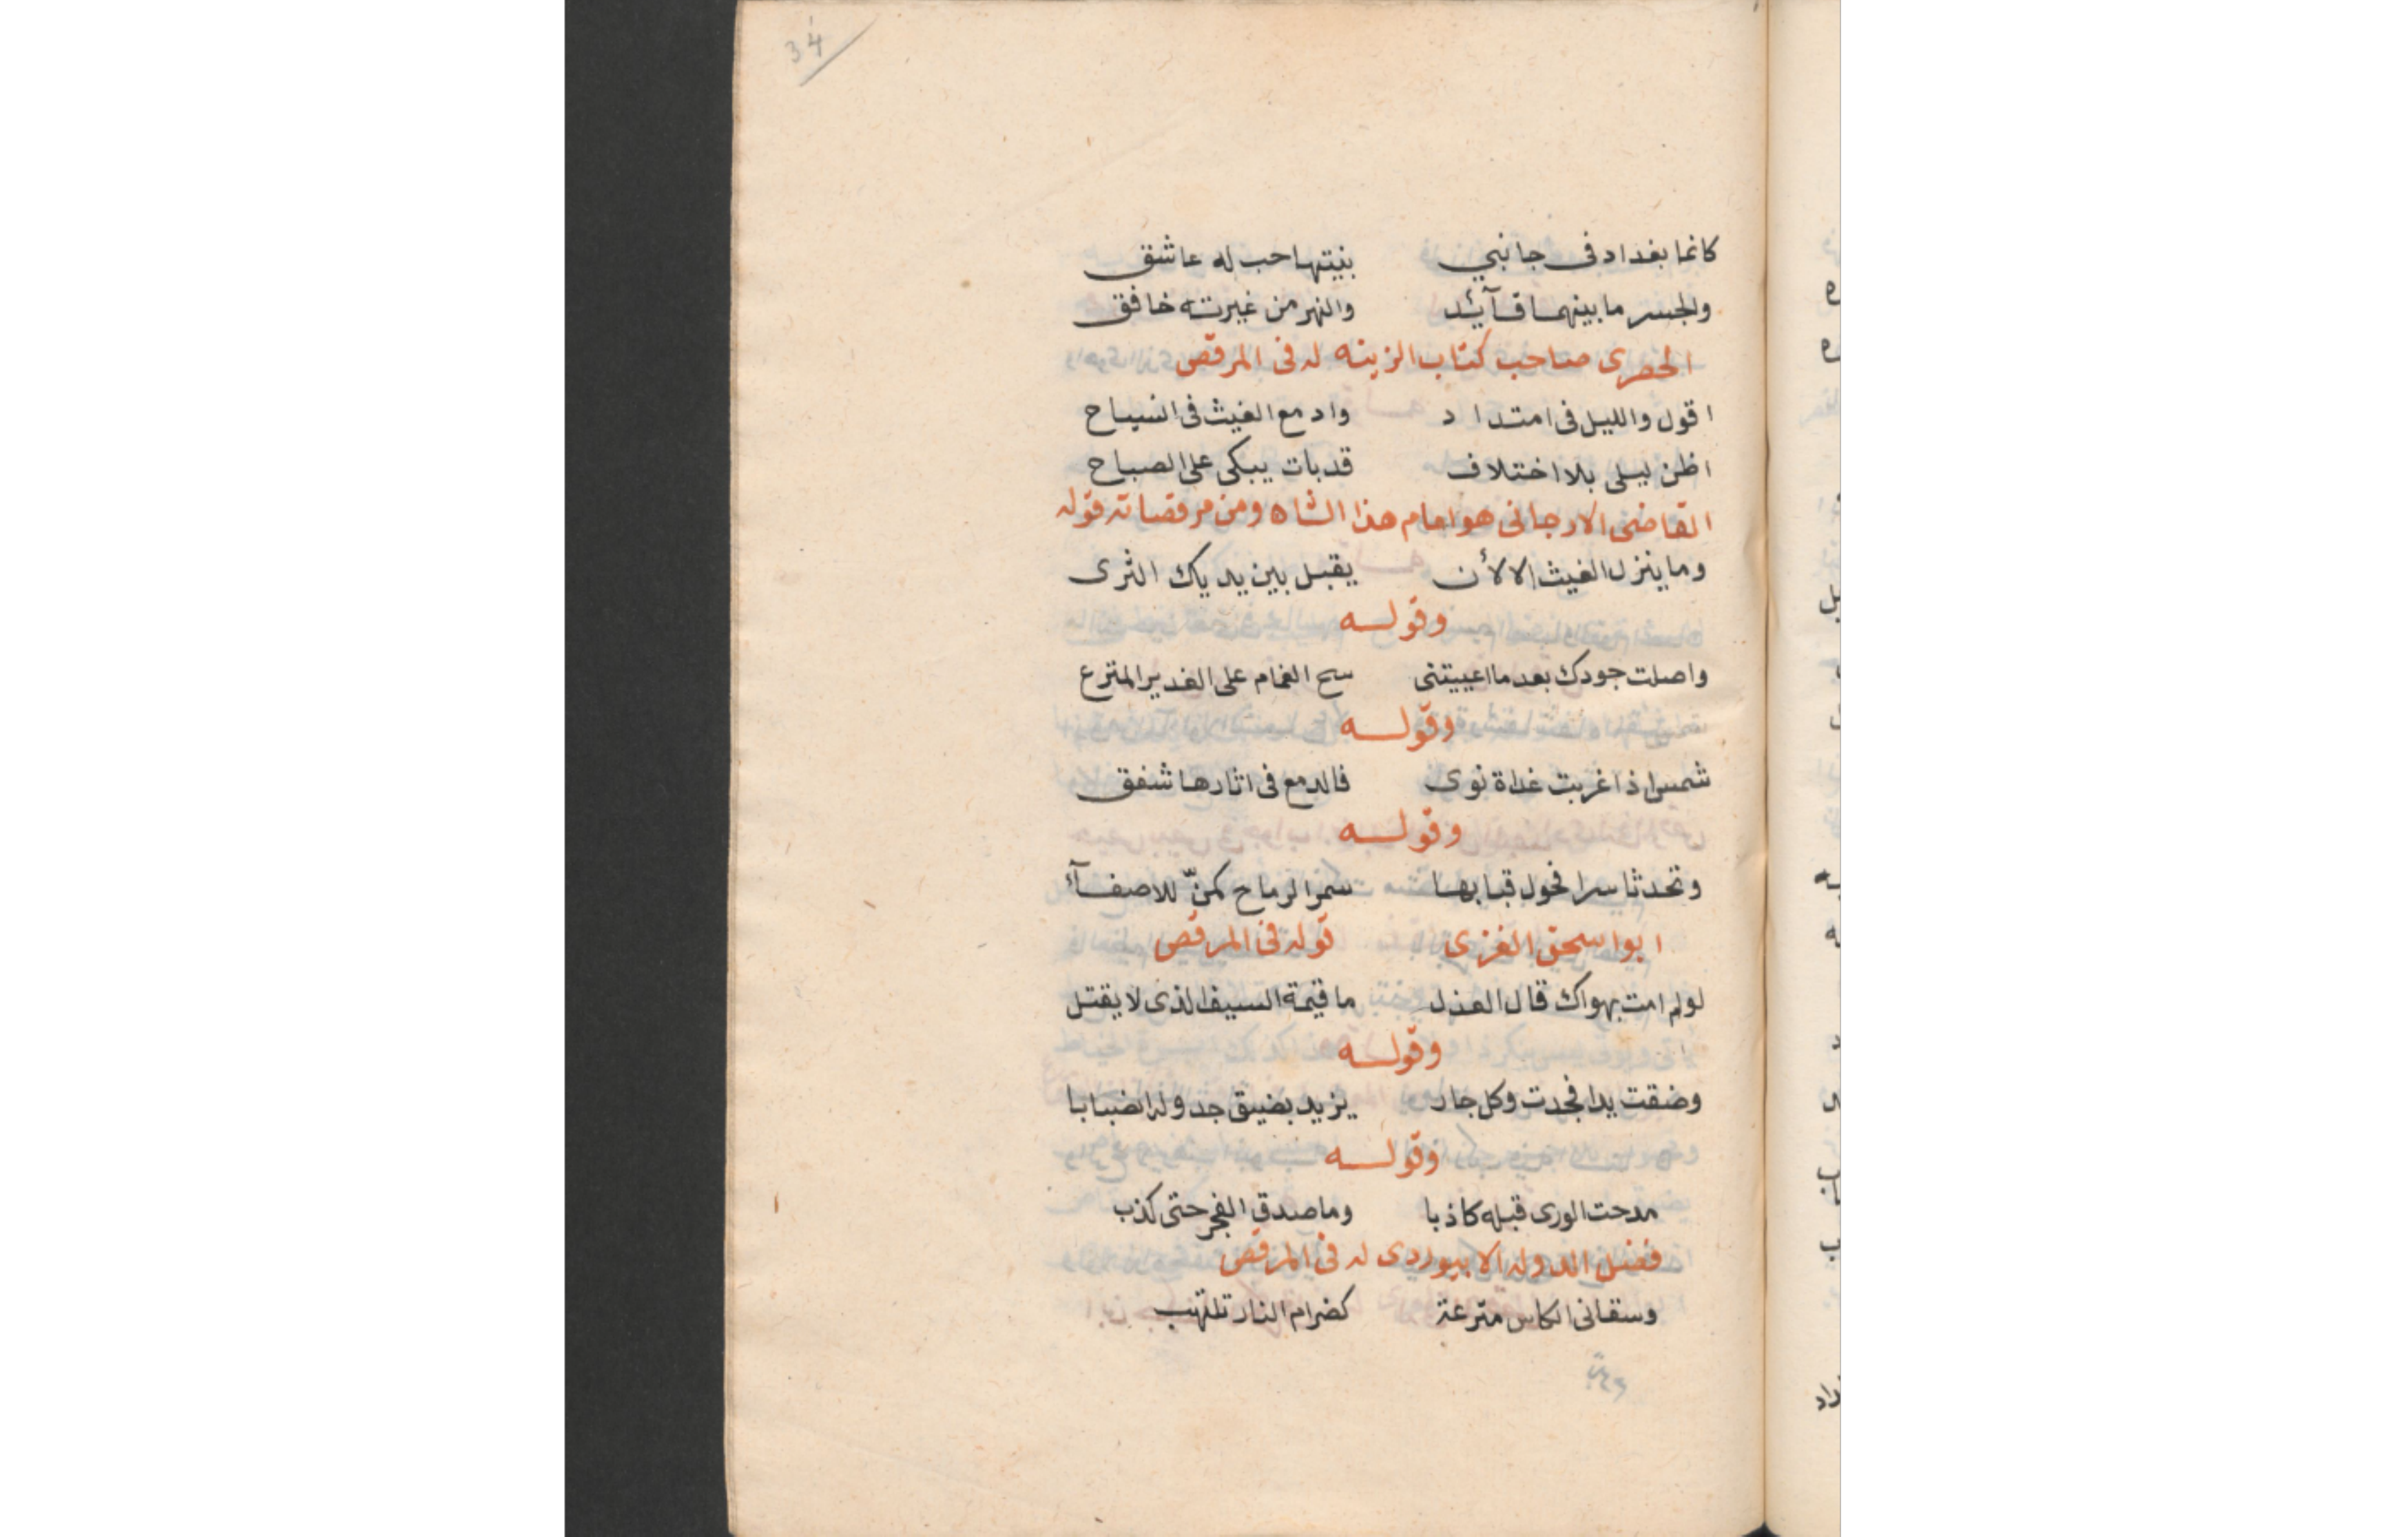 34
كانما بغداد فى جانبي بنيتها حب له عاشق
والجسر ما بينهما قآئد والنهر من غيرته خافق
الحصرى صاحب كتاب الزينه له فى المرقص
اقول والليل فى امتداد وادمع الغيث فى انسياح
اظن ليلى بلا اختلاف قد بات يبكى على الصباح
القاضى الارجانى هو امام هذا الشاه ومن مرقصاته قوله
وما ينزل الغيث الا لأن يقبل بين يديك الثرى
وقوله
واصلت جودك بعد ما اعييتنى سح الغمام على الغدير المترع
وقوله
شمس اذا غربت غداة نوى فالدمع فى اثارها شفق
وقوله
وتحدثا سرا فحول قبابها سمر الرماح كمنّ للاصفآء
ابو اسحق الغزى قوله فى المرقص
لو لم امت بهواك قال العذل ما قيمة السيف الذى لا يقتل
وقوله
وضقت يدا فجدت وكل جار يزيد بضيق جدوله انصبابا
وقوله
مدحت الورى قبله كاذبا وما صدق الفجر حتى كذب
فضل الدوله الابيوردى له فى المرقص
وسقانى الكاس مترعة كضرام النار تلتهب